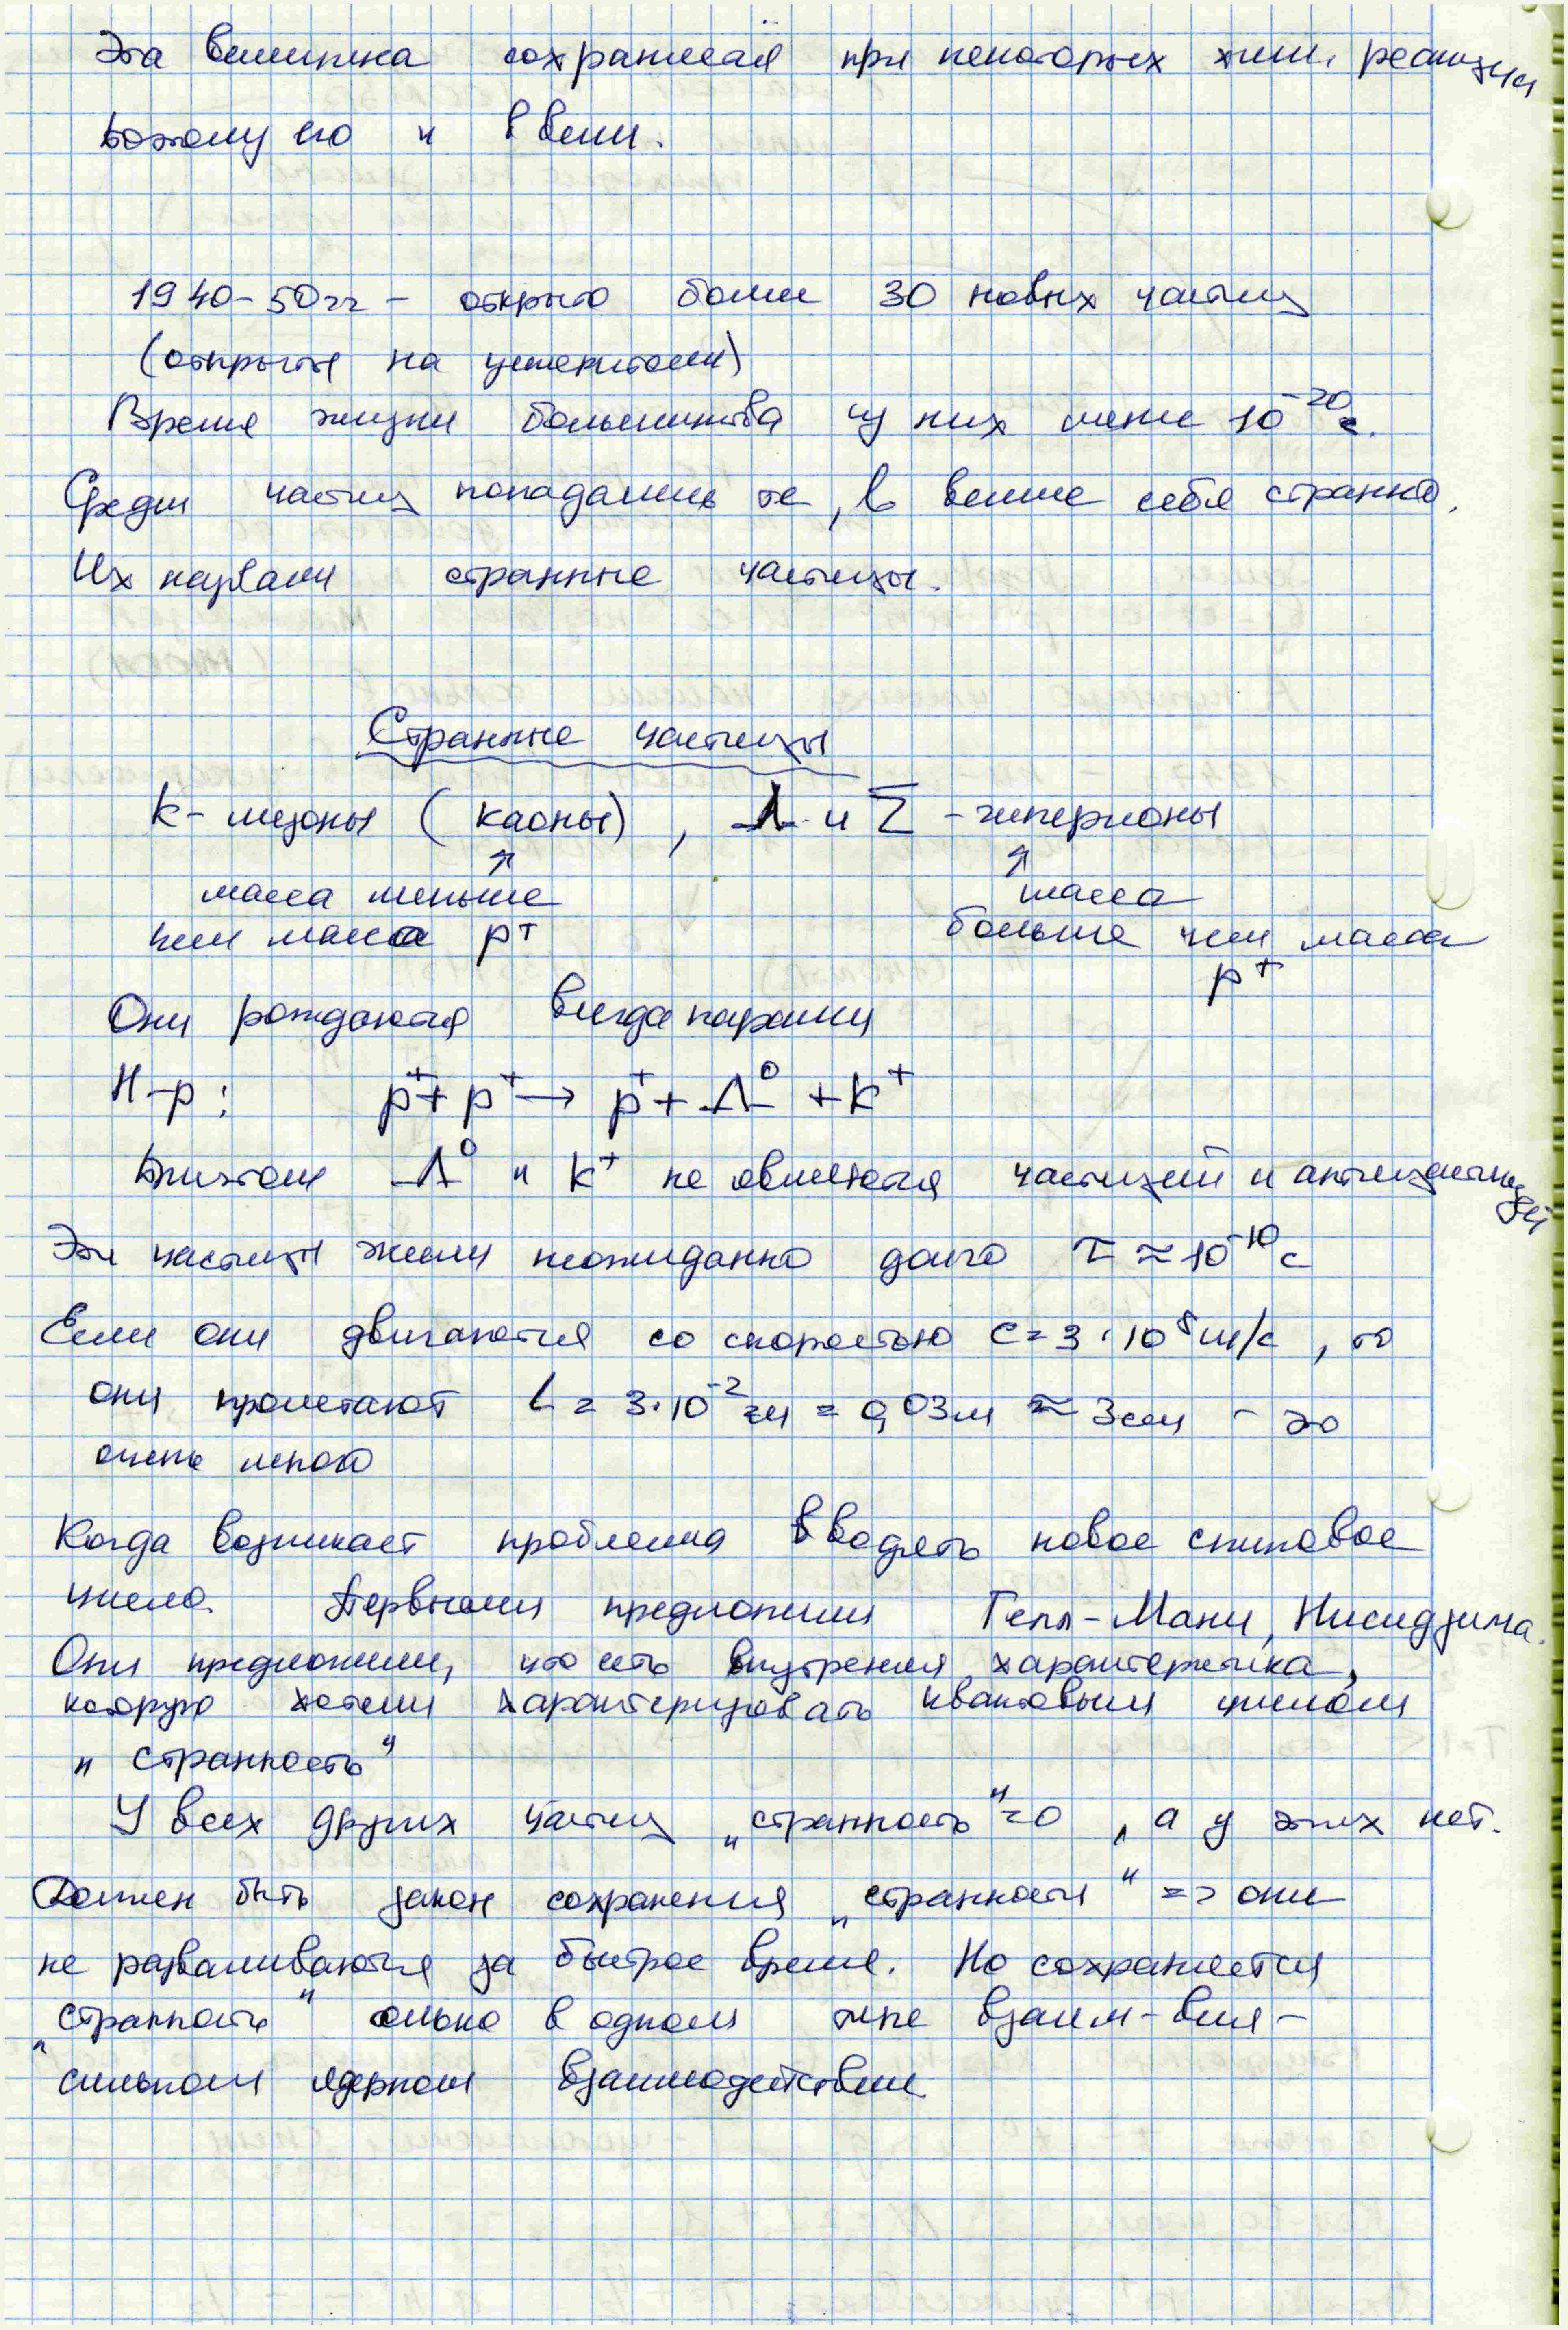 Эта величина сохранялась при некоторых хим. реакциях
поэтому его и ввели.
1940-50гг - открыто более 30 новых частиц
(открыты на ускорителях)
Время жизни большинства из них менее 10⁻²⁰с.
Среди частиц попадались те, вели себя странно.
Их назвали странные частицы.
Странные частицы
К- мезоны (каоны), Λ и Σ - гиперионы
↑ ↑
масса меньше масса
чем масса p⁺ больше чем масса
p⁺
Они рождаются всегда парами
Н-р: p⁺ + p⁺ → p⁺ + Λ⁰ + K⁺
При этом Λ⁰ и K⁺ не являются частицей и античастицей
Эти частицы жили неожиданно долго τ ≈ 10⁻¹⁰ с
Если они двигаются со скоростью c = 3·10⁸ м/с, то
они пролетают L = 3·10⁻² м = 0,03м ≈ 3см - это
очень много
Когда возникает проблема вводят новое спиновое
число. Первыми предложили Гелл-Манн, Нисидзима.
Они предложили, что есть внутренняя характеристика,
которую хотели характеризовать квантовым числом
„странность“
У всех других частиц „странность“ = 0, а у этих нет.
Должен быть закон сохранения „странности“ => они
не разваливаются за быстрое время. Но сохраняется
„странность“ только в одном типе взаим-вия -
сильном ядерном взаимодействии